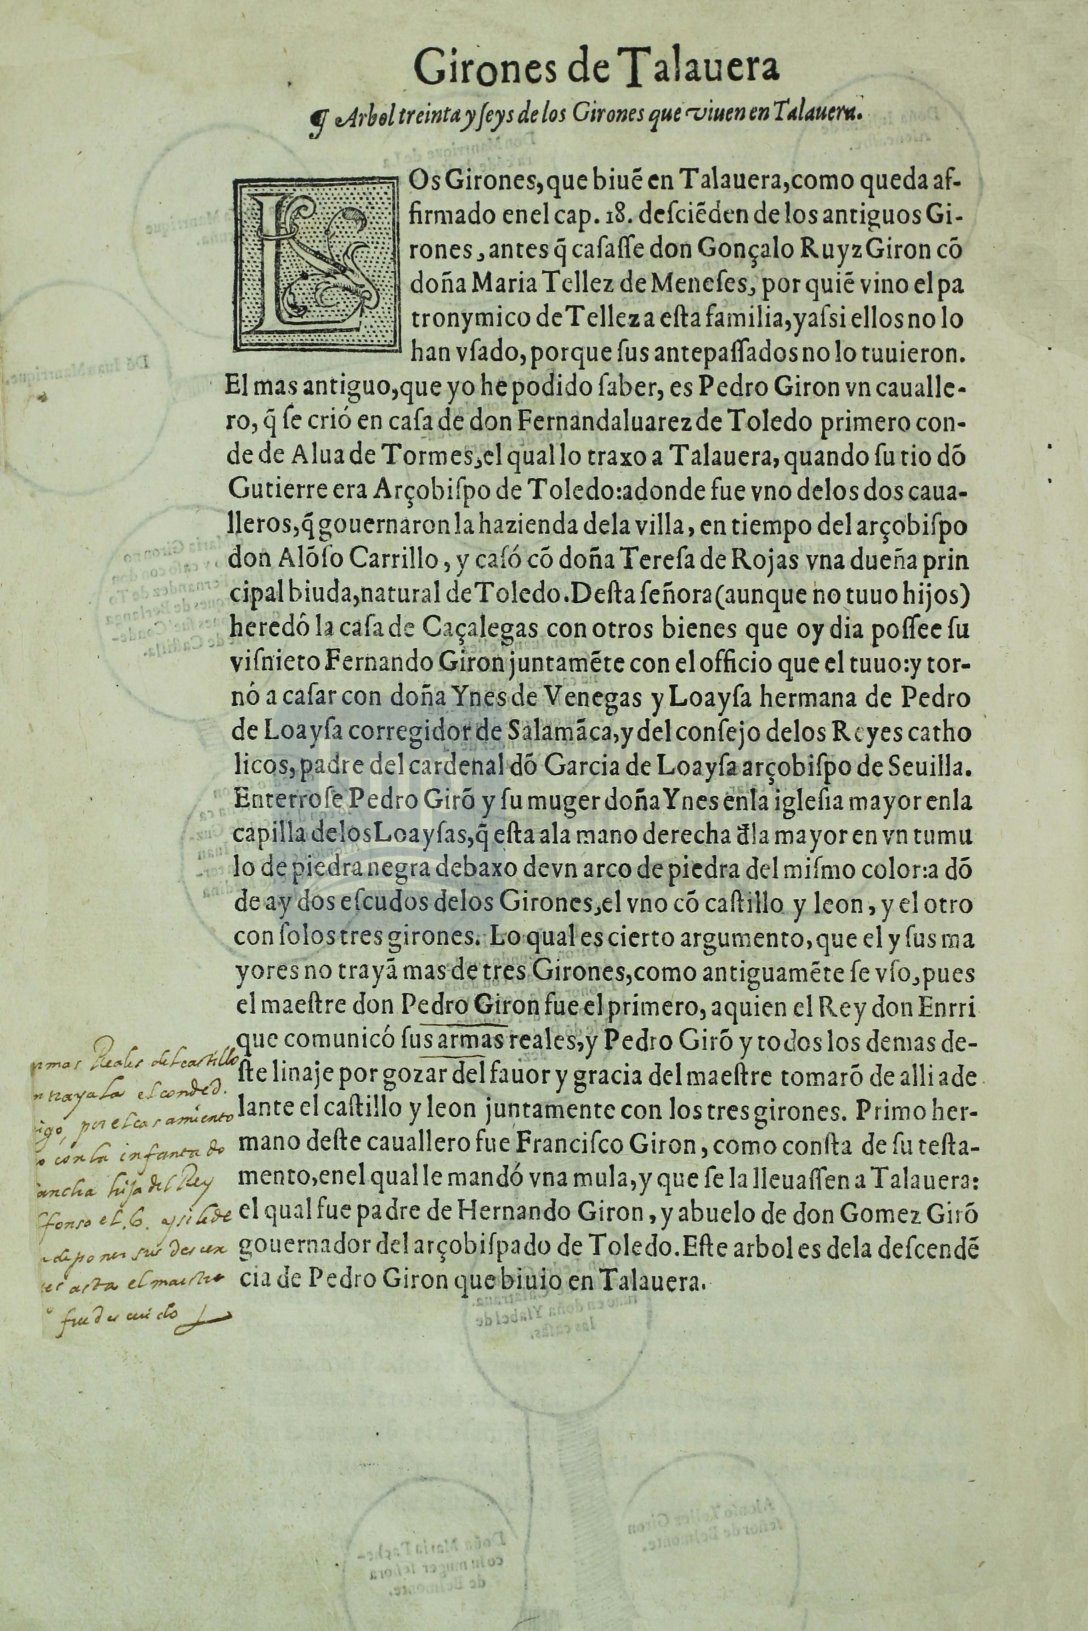 Girones de Talauera
¶ Arbol treinta y ſeys de los Girones que viuen en Talauera.
LOs Girones, que biuẽ en Talauera, como queda af-
firmado enel cap. 18. deſciẽden de los antiguos Gi-
rones, antes q̃ caſaſſe don Gonçalo Ruyz Giron cõ
doña Maria Tellez de Meneſes, por quiẽ vino el pa
tronymico de Tellez a eſta familia, y aſsi ellos no lo
han vſado, porque ſus antepaſſados no lo tuuieron.
El mas antiguo, que yo he podido ſaber, es Pedro Giron vn caualle-
ro, q̃ ſe crió en caſa de don Fernandaluarez de Toledo primero con-
de de Alua de Tormes, el qual lo traxo a Talauera, quando ſu tio dõ
Gutierre era Arçobiſpo de Toledo: adonde fue vno delos dos caua-
lleros, q̃ gouernaron la hazienda dela villa, en tiempo del arçobiſpo
don Alõſo Carrillo, y casó cõ doña Tereſa de Rojas vna dueña prin
cipal biuda, natural de Toledo. Deſta ſeñora (aunque no tuuo hijos)
heredô la caſa de Caçalegas con otros bienes que oy dia poſſee ſu
viſnieto Fernando Giron juntamẽte con el officio que el tuuo: y tor-
nó a caſar con doña Ynes de Venegas y Loayſa hermana de Pedro
de Loayſa corregidor de Salamãca, y del conſejo delos Reyes catho
licos, padre del cardenal dõ Garcia de Loayſa arçobiſpo de Seuilla.
Enterroſe Pedro Girõ y ſu muger doña Ynes enla igleſia mayor enla
capilla delos Loayſas, q̃ eſta ala mano derecha đla mayor en vn tumu
lo de piedra negra debaxo de vn arco de piedra del miſmo color: a dõ
de ay dos eſcudos delos Girones, el vno cõ caſtillo y leon, y el otro
con ſolos tres girones. Lo qual es cierto argumento, que el y ſus ma
yores no trayã mas de tres Girones, como antiguamẽte ſe vſo, pues
el maeſtre don Pedro Giron fue el primero, aquien el Rey don Enrri
que comunicó ſus armas reales, y Pedro Girõ y todos los demas de-
ſte linaje por gozar del fauor y gracia del maeſtre tomarõ de alli ade
lante el caſtillo y leon juntamente con los tres girones. Primo her-
mano deſte cauallero fue Franciſco Giron, como conſta de ſu teſta-
mento, enel qual le mandó vna mula, y que ſe la lleuaſſen a Talauera:
el qual fue padre de Hernando Giron, y abuelo de don Gomez Girõ
gouernador del arçobiſpado de Toledo. Eſte arbol es dela deſcendẽ
cia de Pedro Giron que biuio en Talauera.
rmas Reales del castillo
trayala el conde d.
igo, por el casamiento
con la infanta do
ancha hija del Rey
ffonso el .6. y si le de
deponer sus descen
tes asta el maestre
fue descuido